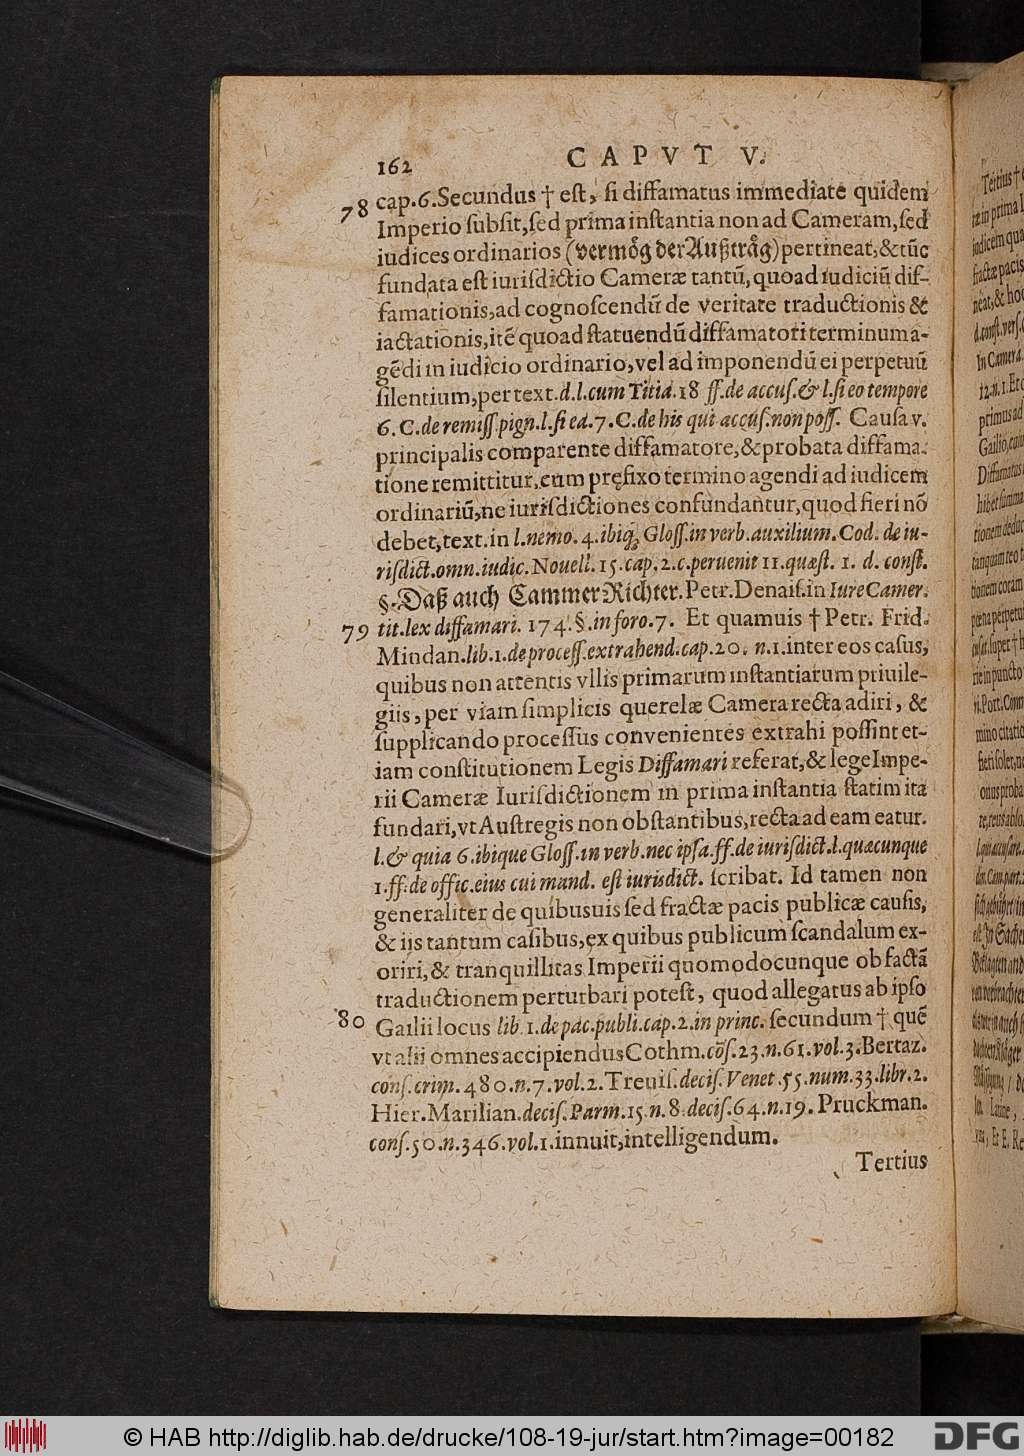 162 CAPVT V.
cap.6.Secundus † eſt, ſi diffamatus immediatè quidem
78 Imperio ſubſit,ſed prima inſtantia non ad Cameram,ſed
iudices ordinarios (vermög der Außträg) pertineat,&tũc
fundata eſt iurisdictio Cameræ tantũ,quoad iudiciũ dif-
famationis,ad cognoſcendũ de veritate traductionis &
iactationis,itẽ quoad ſtatuendũ diffamatori terminum a-
gẽdi in iudicio ordinario,vel ad imponendũ ei perpetuũ
ſilentium,per text.d.l.cum Titia.18 ff.de accuſ.& l.ſi eo tempore
6.C.de remiſſ.pign.l.ſi ea.7.C.de his qui accuſ.non poſſ. Cauſa v.
principalis comparente diffamatore,&probata diffama-
tione remittitur,cum pręfixo termino agendi ad iudicem
ordinariũ,ne iurisdictiones confundantur,quod fieri nõ
debet,text.in l.nemo.4.ibiq; Gloſſ.in verb.auxilium.Cod. de iu-
risdict.omn.iudic.Nouell.15.cap.2.c.peruenit 11.quæſt. 1. d. conſt.
§.Daß auch CammerRichter.Petr.Denaiſ.in Iure Camer.
79 tit.lex diffamari. 174.§.in foro.7. Et quamuis † Petr. Frid.
Mindan.lib.1.de proceſſ.extrahend.cap.20. n.1.inter eos caſus,
quibus non attentis vllis primarum inſtantiarum priuile-
giis, per viam ſimplicis querelæ Camera recta adiri, &
ſupplicando proceſſus convenientes extrahi poſſint et-
iam conſtitutionem Legis Diffamari referat,& lege Impe-
rii Cameræ Iurisdictionem in prima inſtantia ſtatim ita
fundari,vt Auſtregis non obſtantibus,recta ad eam eatur.
l.& quia 6.ibique Gloſſ.in verb.nec ipſa.ff.de iurisdict.l.quacunque
1.ff.de offic.eius cui mand. eſt iurisdict. ſcribat. Id tamen non
generaliter de quibusuis ſed fractæ pacis publicæ cauſis,
& iis tantum caſibus,ex quibus publicum ſcandalum ex-
oriri,& tranquillitas Imperii quomodocunque ob factã
traductionem perturbari poteſt, quod allegatus ab ipſo
80 Gailii locus lib.1.de pac.publi.cap.2.in princ. ſecundum † quẽ
vt alii omnes accipiendus Cothm.cõſ.23.n.61.vol.3.Bertaz.
conſ.crim.480.n.7.vol.2.Treuiſ.deciſ.Venet.55.num.33.libr.2.
Hier.Marilian.deciſ.Parm.15.n.8.deciſ.64.n.19.Pruckman.
conſ.50.n.346.vol.1.innuit,intelligendum.
Tertius
© HAB http://diglib.hab.de/drucke/108-19-jur/start.htm?image=00182
DFG